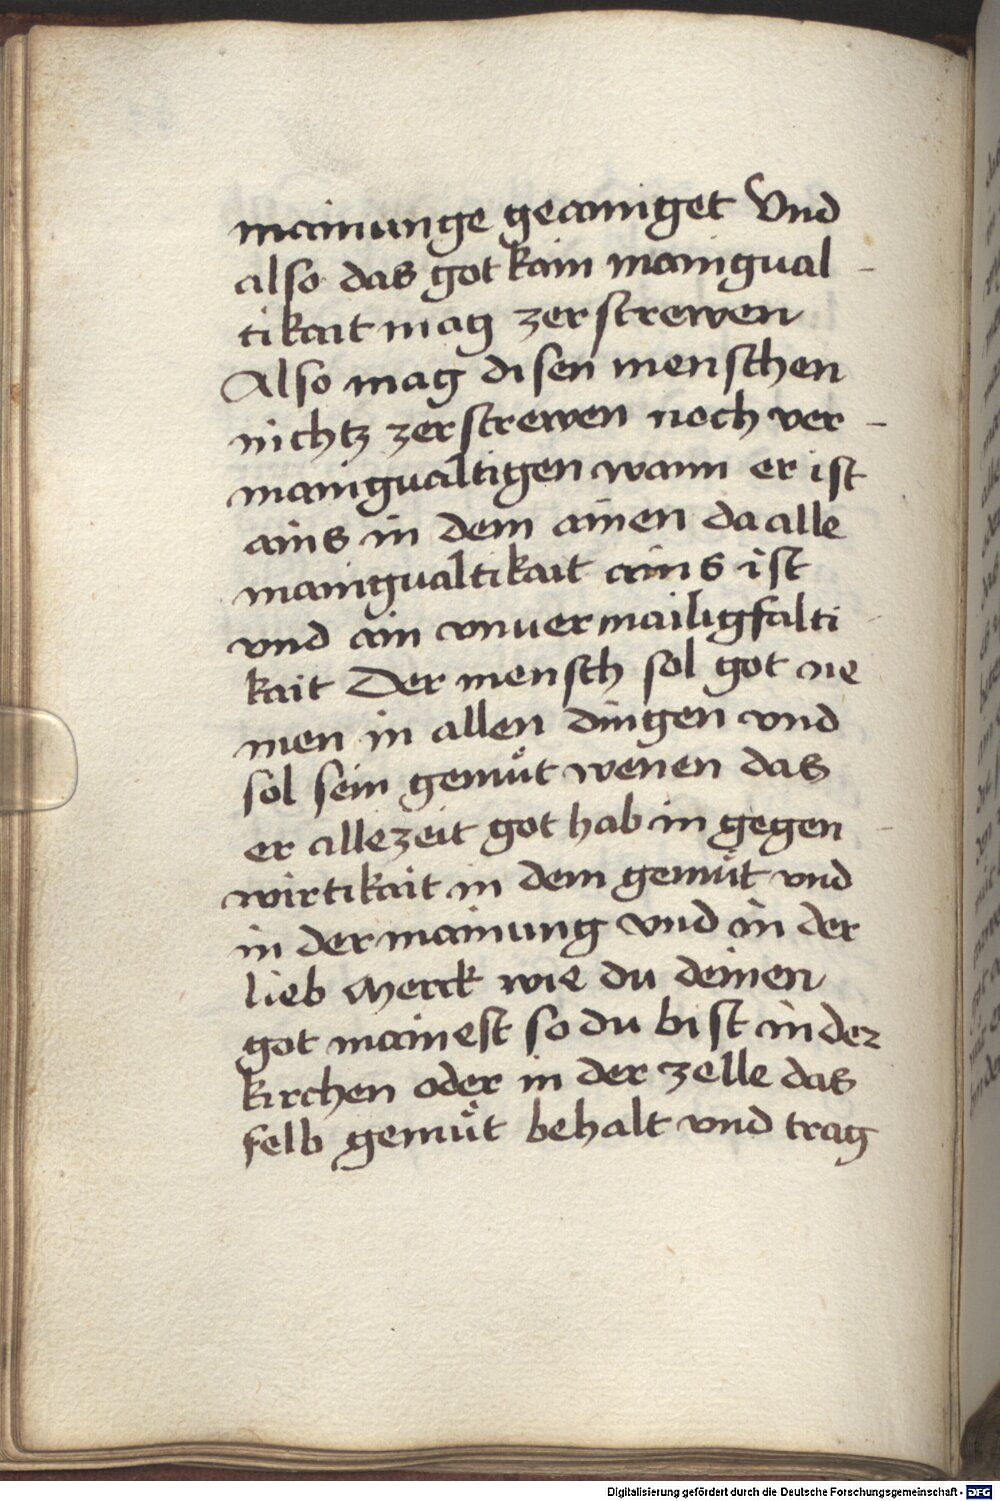 mainunge geainiget Vnd
also das got kain manigual -
tikait mag zerstrewen
Also mag disen menschen
nichtz zerstrewen noch ver -
manigualtigen wann er ist
ains in dem ainen da alle
manigualtikait ains ist
vnd ain vnuermailigfalti
kait Der mensch sol got ne
men in allen dingen vnd
sol sein gemuͤt wenen das
er allezeit got hab in gegen
wirtikait in dem gemuͤt vnd
in der mainung vnd in der
lieb Merck wie du deinen
got mainest so du bist in der
kirchen oder in der zelle das
selb gemuͤt behalt vnd trag
Digitalisierung gefördert durch die Deutsche Forschungsgemeinschaft - DFG